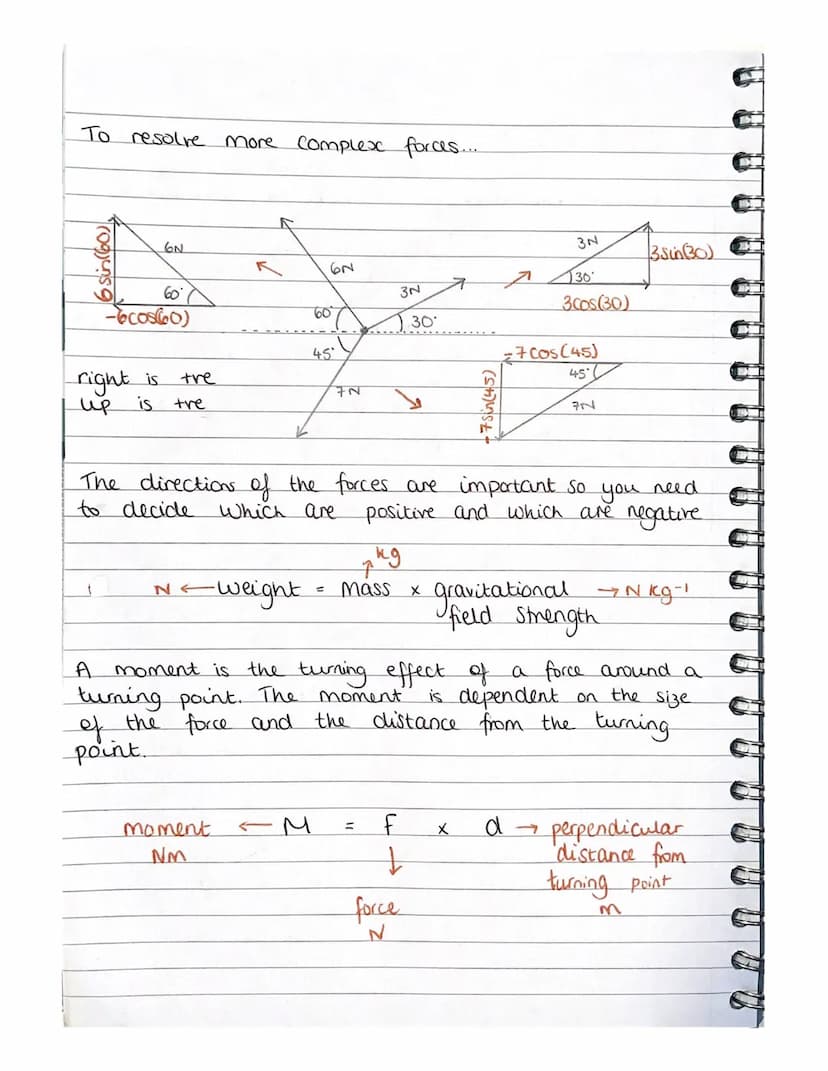 To resolve more complex forces...
6 sin(60)
6N
60°
-6cos(60)
6N
3N
60°
30°
45°
7N
3N
3sin(30)
30°
3cos(30)
-7cos(45)
45°
-7sin(45)
7N
right is +ve
up is +ve
The directions of the forces are important so you need
to decide which are positive and which are negative
kg
N ← Weight = mass × gravitational → N kg⁻¹
field strength
A moment is the turning effect of a force around a
turning point. The moment is dependent on the size
of the force and the distance from the turning
point.
moment ← M = f × d → perpendicular
Nm ↓ distance from
turning point
force m
N